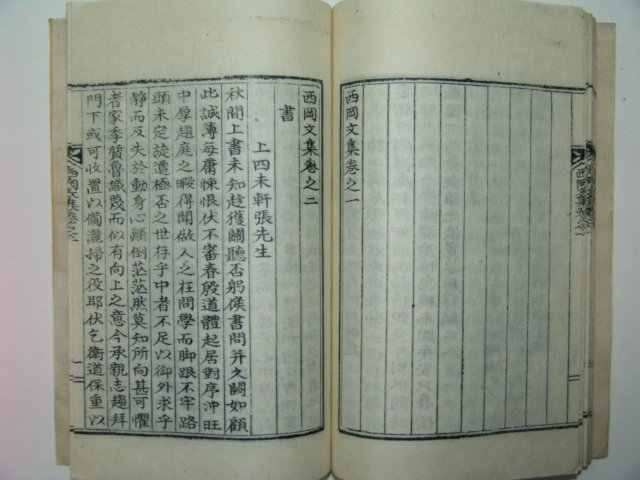 西岡文集卷之一
西岡文集卷之二
書
上四未軒張先生
秋間上書未知趁獲關聽否躬候書問幷久闕如顧
此誠薄每庸悚恨伏不審春殷道體起居對序沖旺
中厚趨庭之暇得聞做人之枉問學而脚跟不牢路
頭未定旋遭極否之世存乎中者不足以御外求乎
靜而反失於動身心顚倒茫茫然莫知所向甚可懼
者家季質魯識蔑而似有向上之意今承親志趨拜
門下或可收置以備灑掃之役耶伏乞衛道保重以
西岡文集卷之二
一